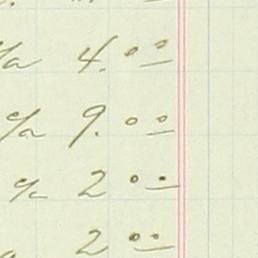 c/a 4.00
c/a 9.00
c/a 2.00
2.00